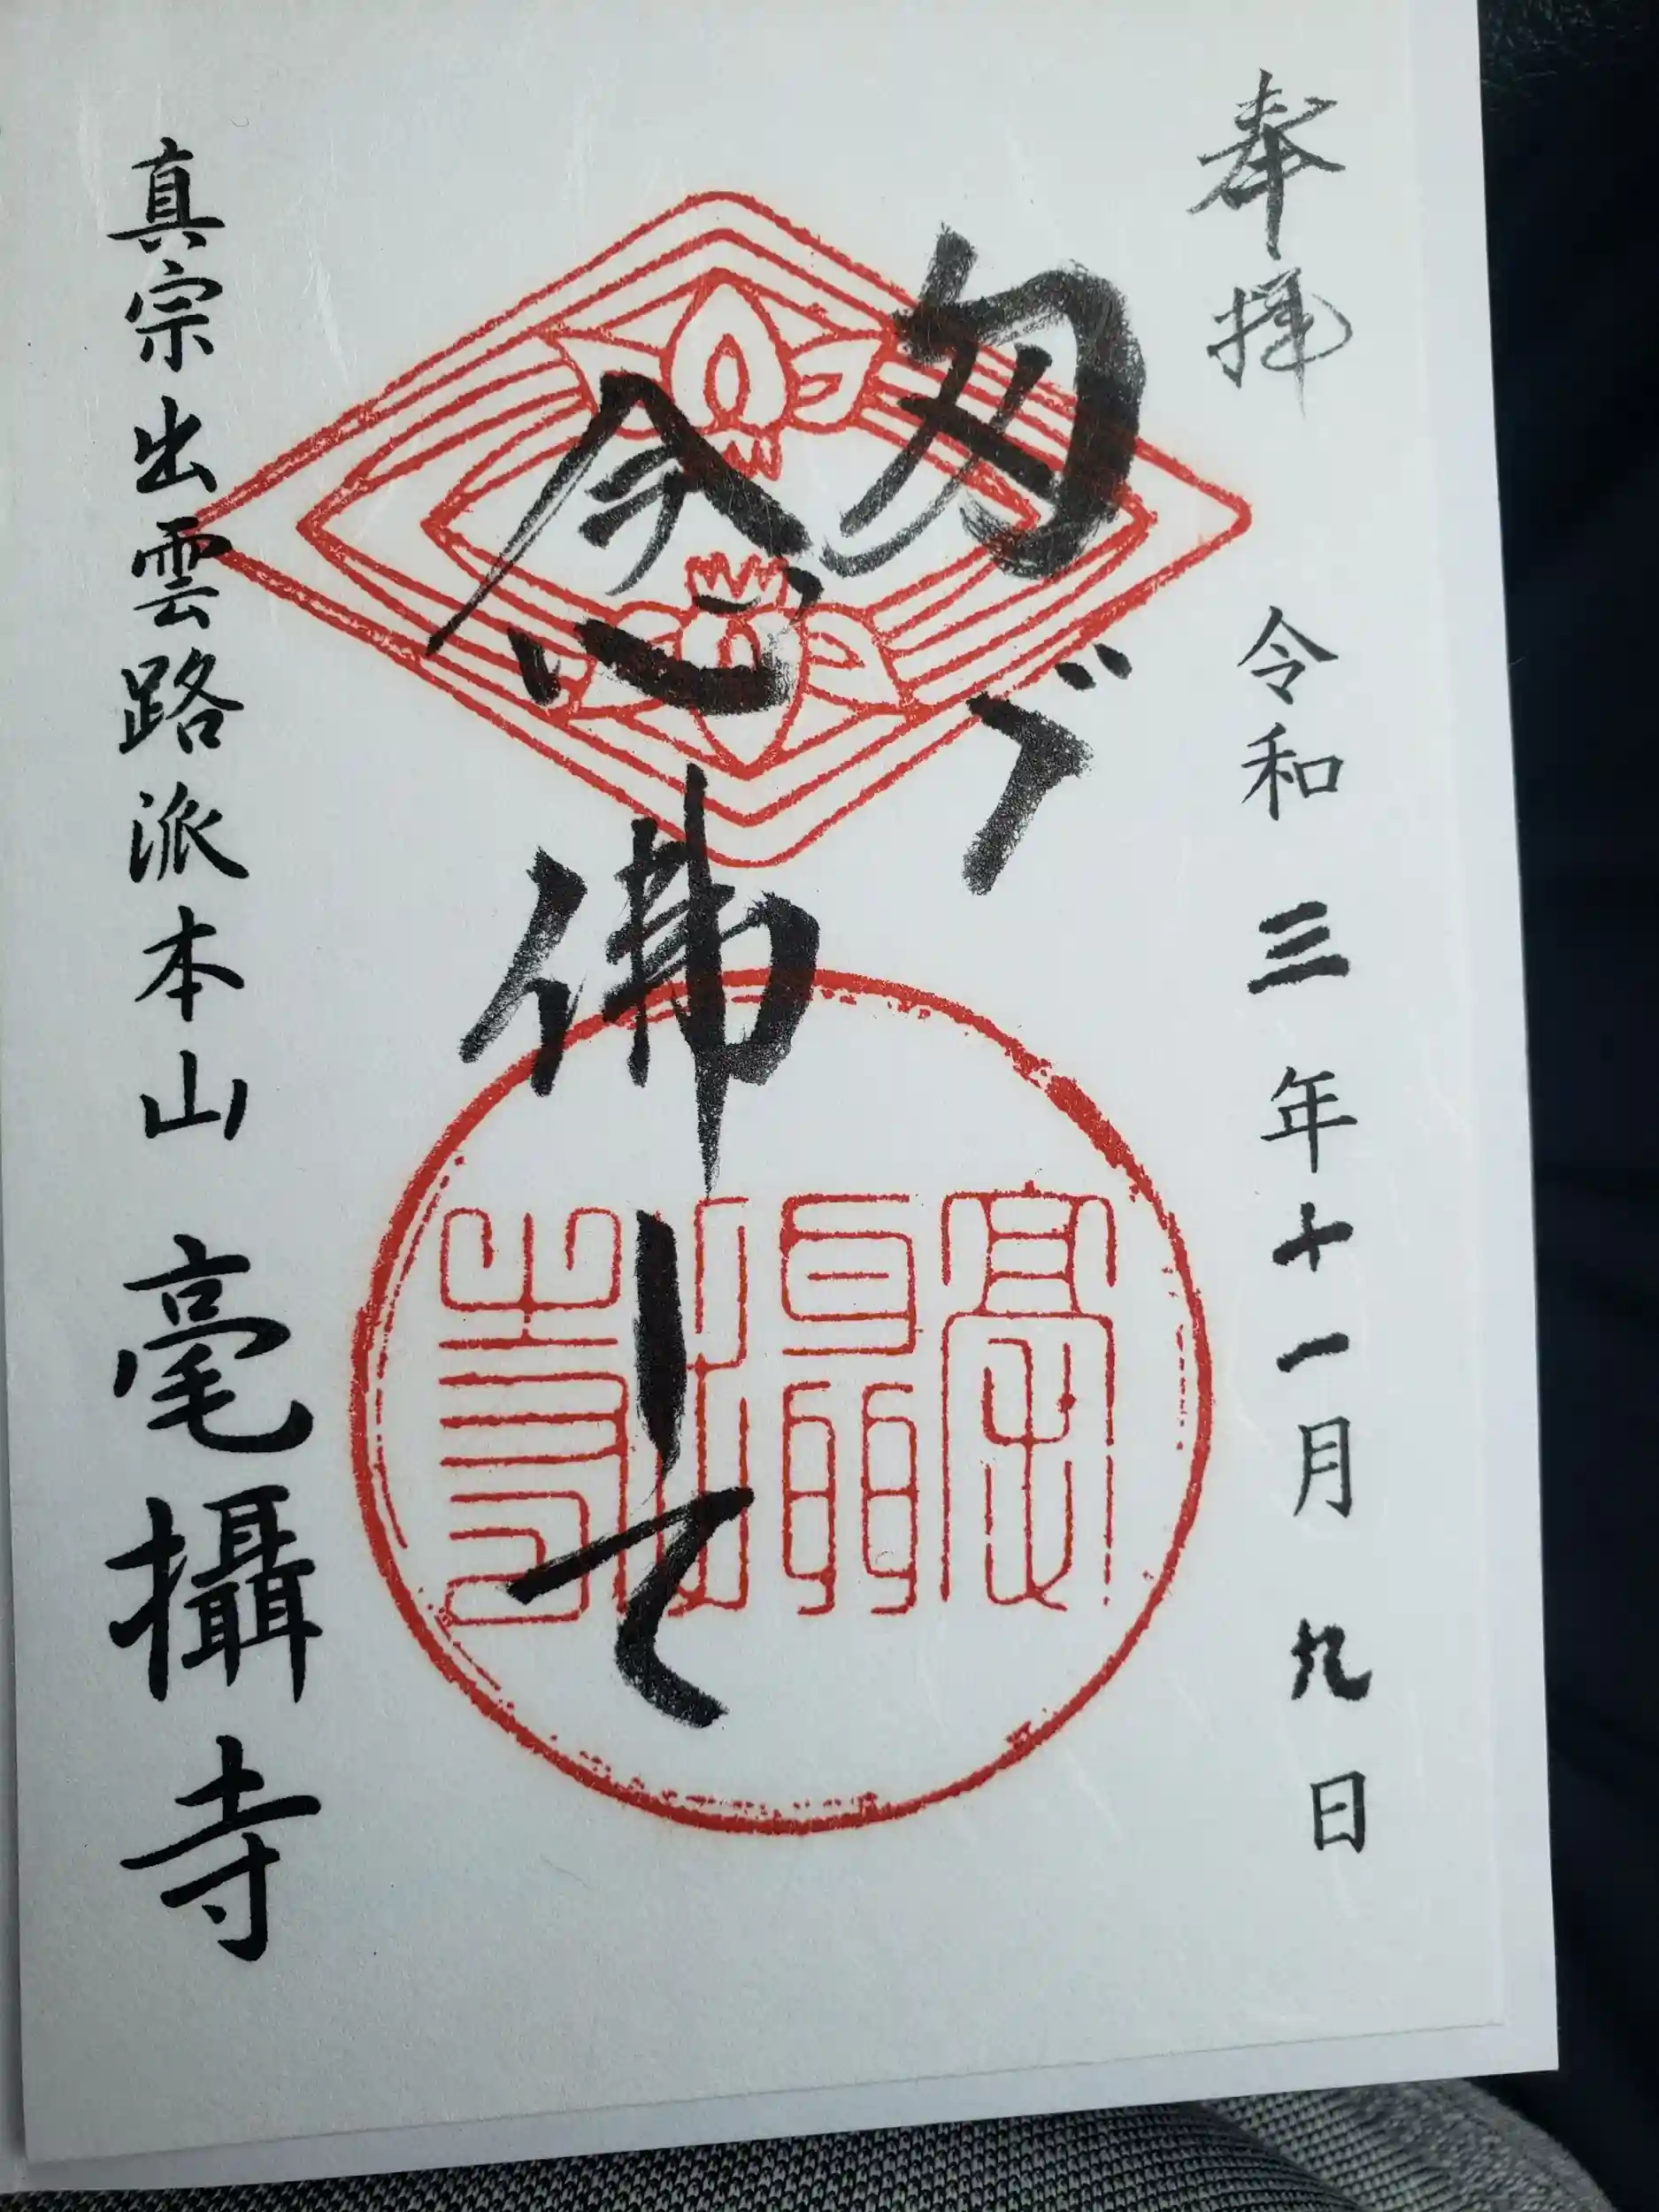 奉拝
令和三年十一月九日
念佛して
真宗出雲路派本山 毫攝寺
毫攝寺